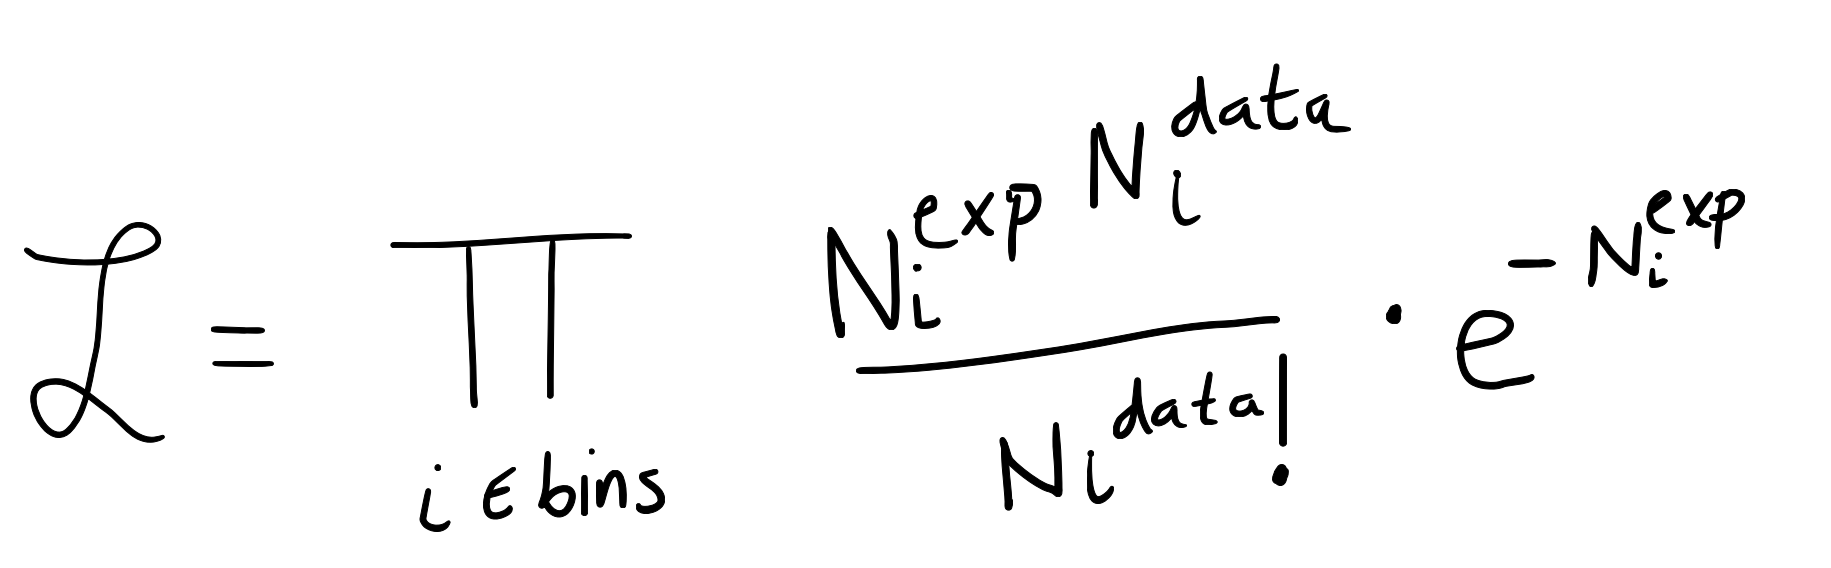 $\mathcal{L} = \prod_{i \in \text{bins}} \frac{{N_i^{\text{exp}}}^{N_i^{\text{data}}}}{N_i^{\text{data}}!} \cdot e^{-N_i^{\text{exp}}}$